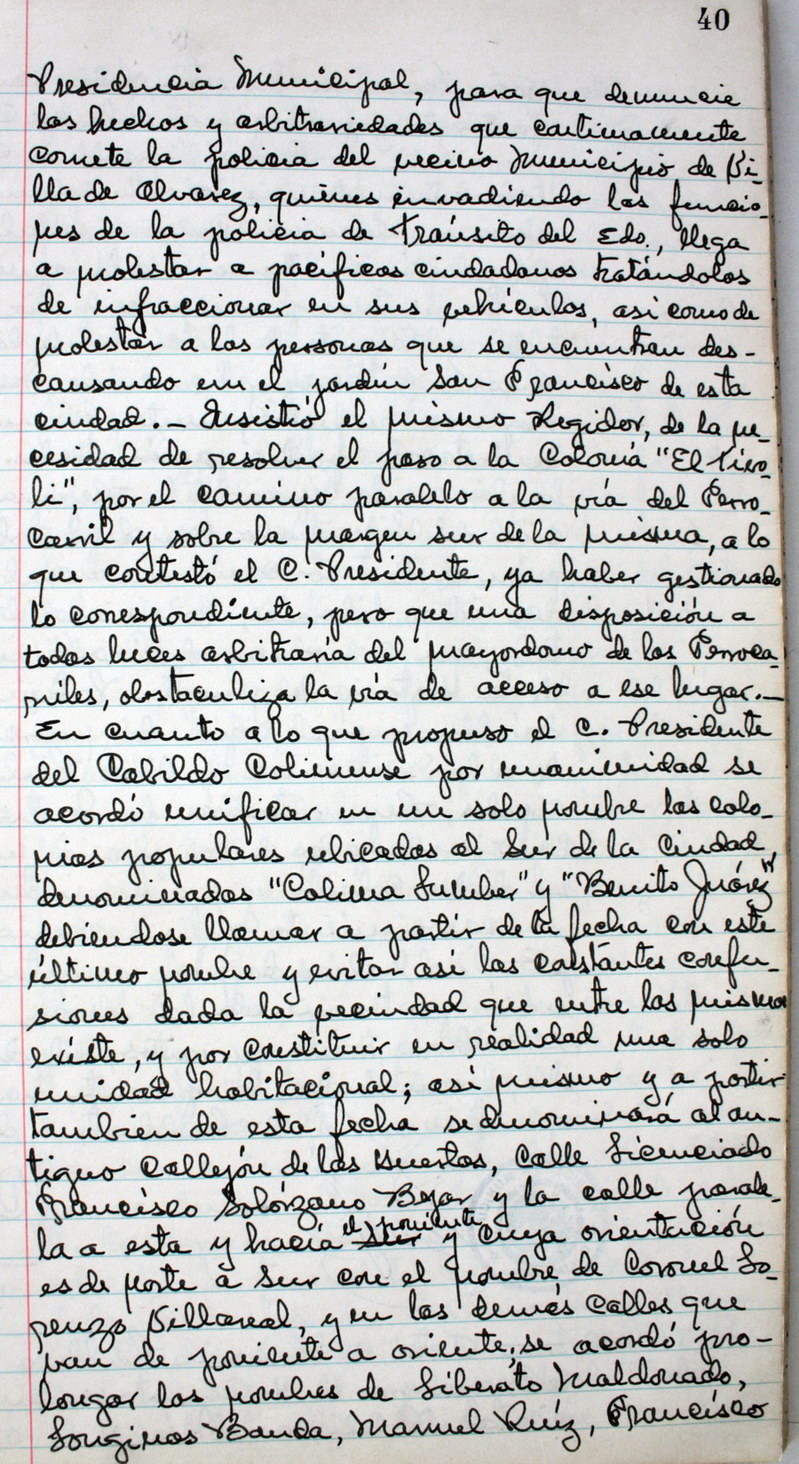 40
Presidencia Municipal, para que denuncie
los hechos y arbitrariedades que continuamente
comete la policia del vecino Municipio de Vi-
lla de Alvarez, quiénes invadiendo las funcio-
nes de la policia de Tránsito del Edo., llega
a molestar a pacíficos ciudadanos tratándolos
de infraccionar en sus vehículos, así como de
molestar a las personas que se encuentran des-
cansando em el jardín San Francisco de esta
ciudad.- Insistió el mismo Regidor, de la ne-
cesidad de resolver el paso a la Colonia "El Tívo-
li", por el camino paralelo a la vía del Ferro-
carril y sobre la margen sur de la misma, a lo
que contestó el C. Presidente, ya haber gestionado
lo correspondiente, pero que una disposición a
todas luces arbitraria del mayordomo de los Ferroca-
rriles, obstaculiza la vía de acceso a ese lugar.-
En cuanto a lo que propuso el C. Presidente
del Cabildo Colimense por unanimidad se
acordó unificar en un solo nombre las colo-
nias populares ubicadas al Sur de la Ciudad,
denominadas "Colima Sumber" y "Benito Juárez"
debiéndose llamar a partir de la fecha con este
último nombre y evitar así las constantes confu-
siones dada la vecindad que entre las mismas
existe, y por constituir en realidad una solo
unidad habitacional; así mismo y a partir
tambien de esta fecha se denominará al an-
tiguo Callejón de las Huertas, Calle Licenciado
Francisco Solórzano Bejar y la calle parale-
la a esta y hacia el poniente y cuya orientación
es de norte a Sur con el nombre de Coronel Lo-
renzo Villareal, y en las demás calles que
van de poniente a oriente, se acordó pro-
longar los nombres de Liberato Maldonado,
Longinos Banda, Manuel Ruíz, Francisco